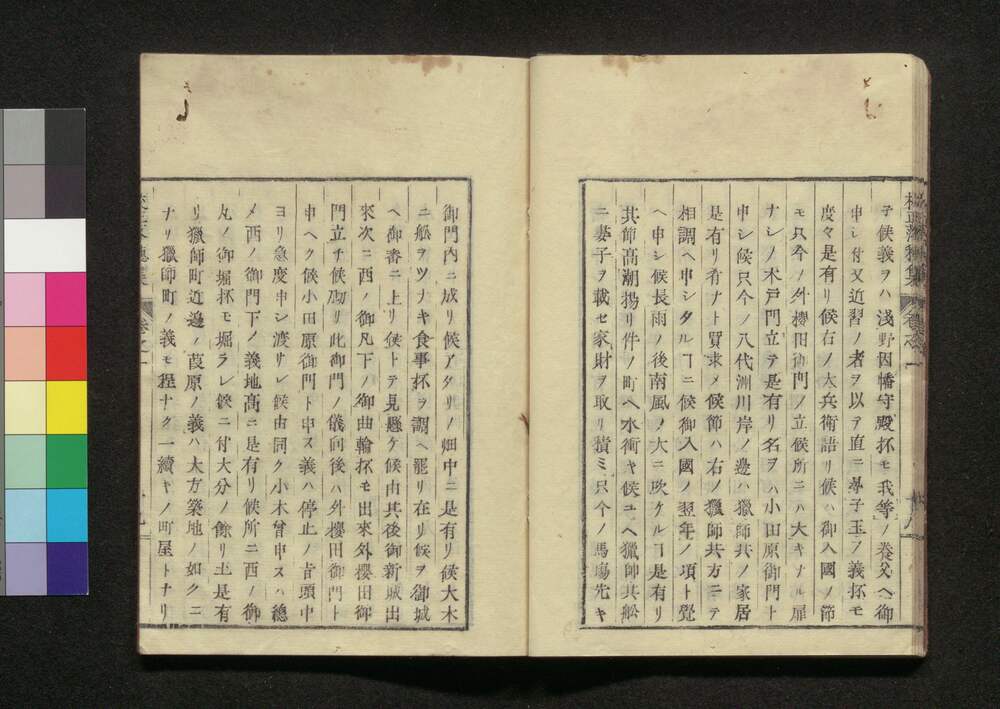 子候義ヲハ淺野因幡守殿抔モ我等ノ養父ヘ御
申シ付又近習ノ者ヲ以テ直ニ孝子玉フ義抔モ
度々是有リ候右ノ大兵衛語リ候ハ御入國ノ節
モ只今ノ外櫻田御門ノ立候所ニハ大キナル扉
ナシノ木戸門立テ是有リ名ヲハ小田原御門ト
申シ候只今ノ八代洲川岸ノ邊ハ獵師共ノ家居
是有リ有ナト買求メ候節ハ右ノ獵師共方ニテ
相調ヘ申シタルヿニ候御入國ノ翌年ノ頃ト覺
ヘ申シ候長雨ノ後南風ノ大ニ吹ケルヿ是有リ
其節高潮揚リ件ノ町ヘ水衝キ候ユヘ獵師共舩
ニ妻子ヲ載セ家財ヲ取リ積ミ只今ノ馬塲先キ
御門内ニ成リ候アタリノ畑中ニ是有リ候大木
ニ舩ヲツナキ食事抔ヲ調ヘ罷リ在リ候ヲ御城
ヘ御番ニ上リ候トテ見懸ケ候由其後御新城出
來次ニ西ノ御凡下ノ御曲輪抔モ出來外櫻田御
門立チ候砌リ此御門ノ儀向後ハ外櫻田御門ト
申ヘク候小田原御門ト申ス義ハ停止ノ旨頭中
ヨリ急度申シ渡サレ候由同ク小木曾申スハ總
メ西ノ御門下ノ義地高ニ是有リ候所ニ西ノ御
丸ノ御堀抔モ堀ラレ候ニ付大分ノ餘リ土是有
リ獵師町近邊ノ葭原ノ義ハ大方築地ノ如クニ
ナリ獵師町ノ義モ程ナク一續キノ町屋トナリ